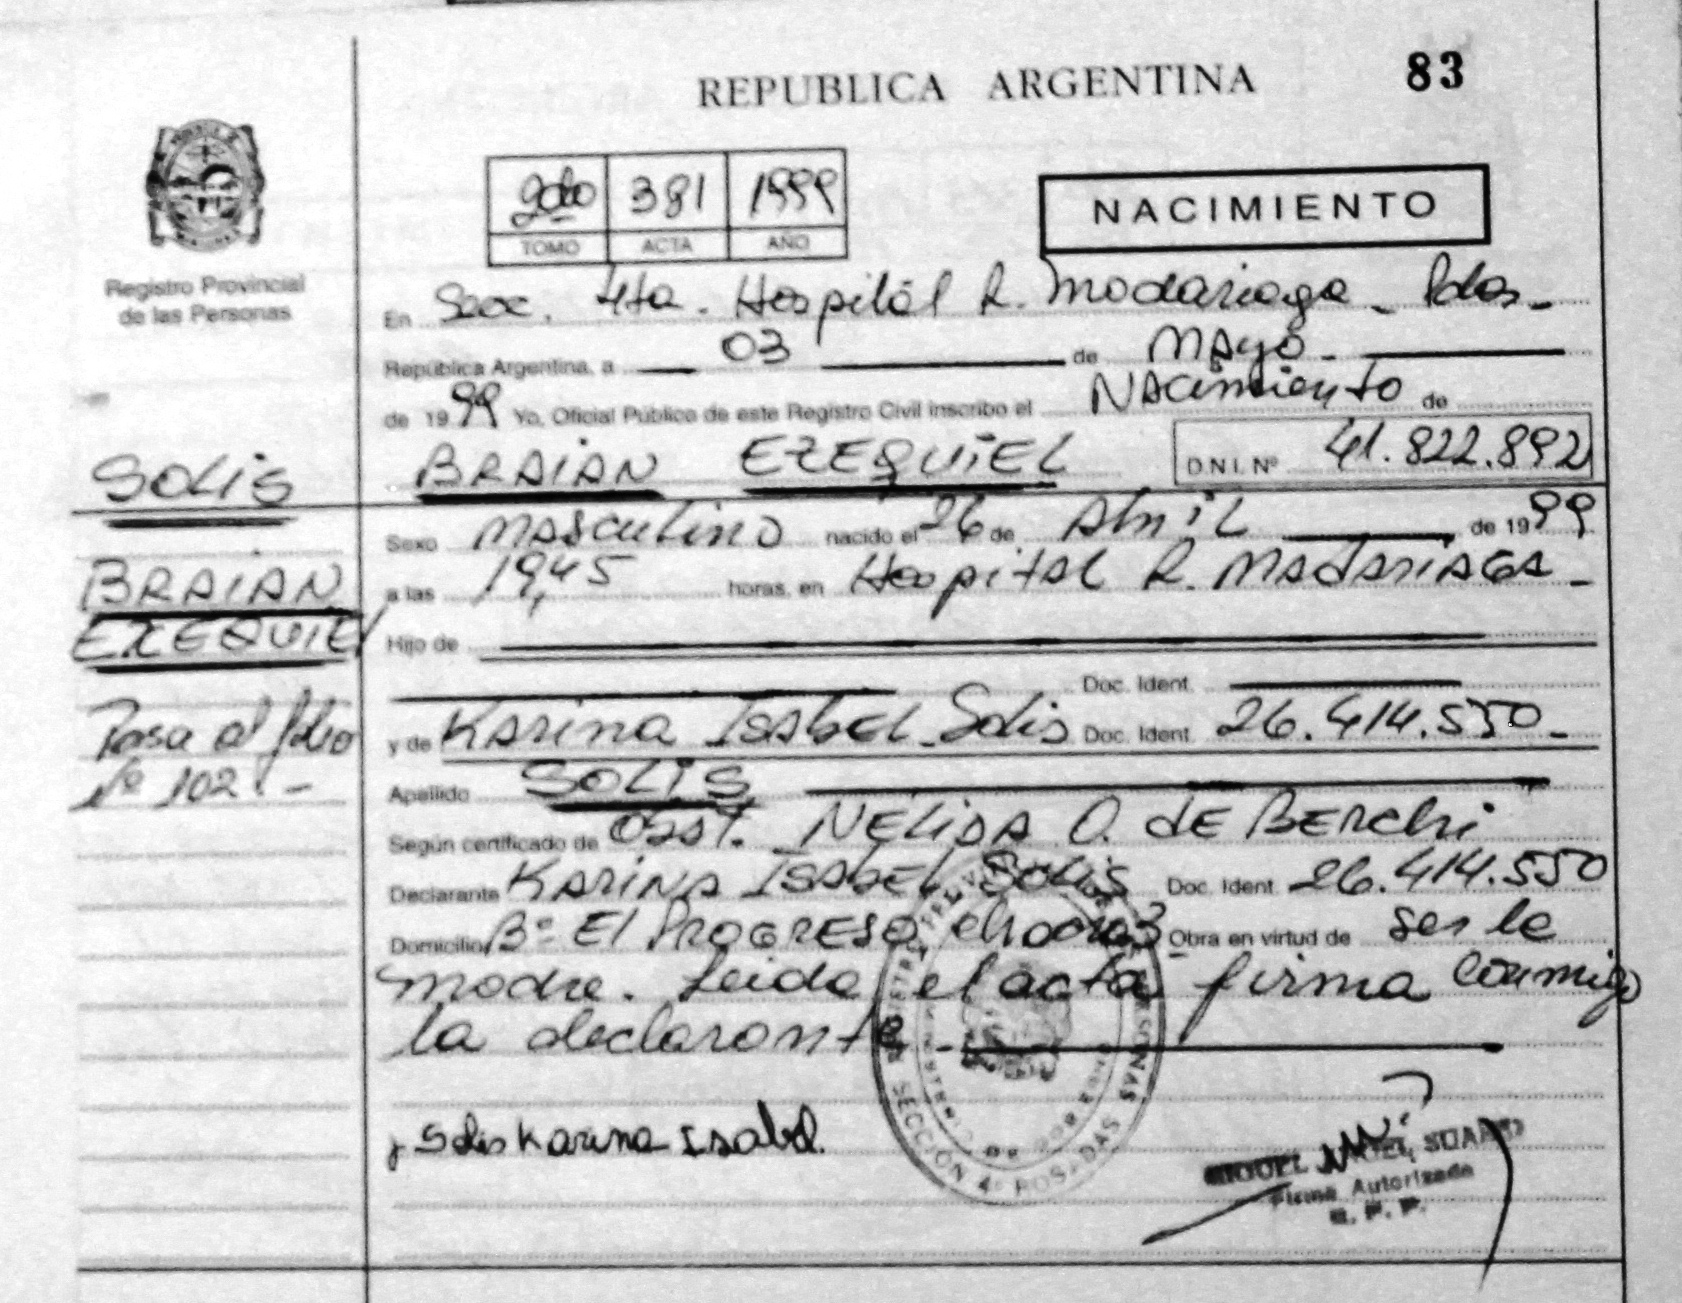 REPUBLICA ARGENTINA 83
2do 381 1999
TOMO ACTA AÑO
NACIMIENTO
Registro Provincial
de las Personas
En Secc. 4ta. Hospital R. Madariaga - Pdas -
República Argentina, a 03 de MAYO -
de 1999 Yo, Oficial Público de este Registro Civil inscribo el NACimiento de
BRAIAN EZEQUIEL D.N.I. Nº 41.822.892
SOLIS
BRAIAN
EZEQUIEL
Pasa al folio
Nº 102. -
Sexo MASCULINO nacido el 26 de Abril de 1999
a las 19,45 horas, en Hospital R. MADARIAGA -
Hijo de
Doc. Ident.
y de KARINA ISABEL Solis Doc. Ident. 26.414.550 -
Apellido SOLIS
Según certificado de Obst. NELIDA O. de BERCHI
Declarante KARINA ISABEL SOLIS Doc. Ident. 26.414.550
Domicilio Bº El PROGRESO chacra 3 Obra en virtud de ser la
madre. Leida el acta firma conmigo
la declarante -
Solis Karina Isabel.
SECCIÓN 4º POSADAS
MIGUEL ANGEL SUAREZ
Firma Autorizada
R. P. P.